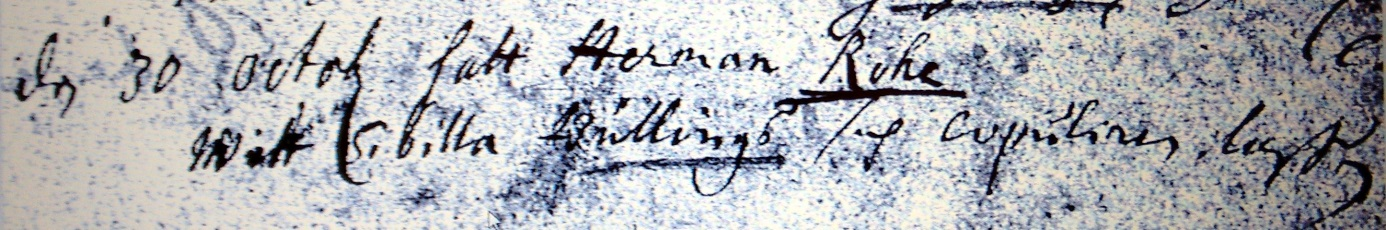 den 30 octob hatt Herman Rohe
Mitt Sibilla Büllings sich copuliren lassen